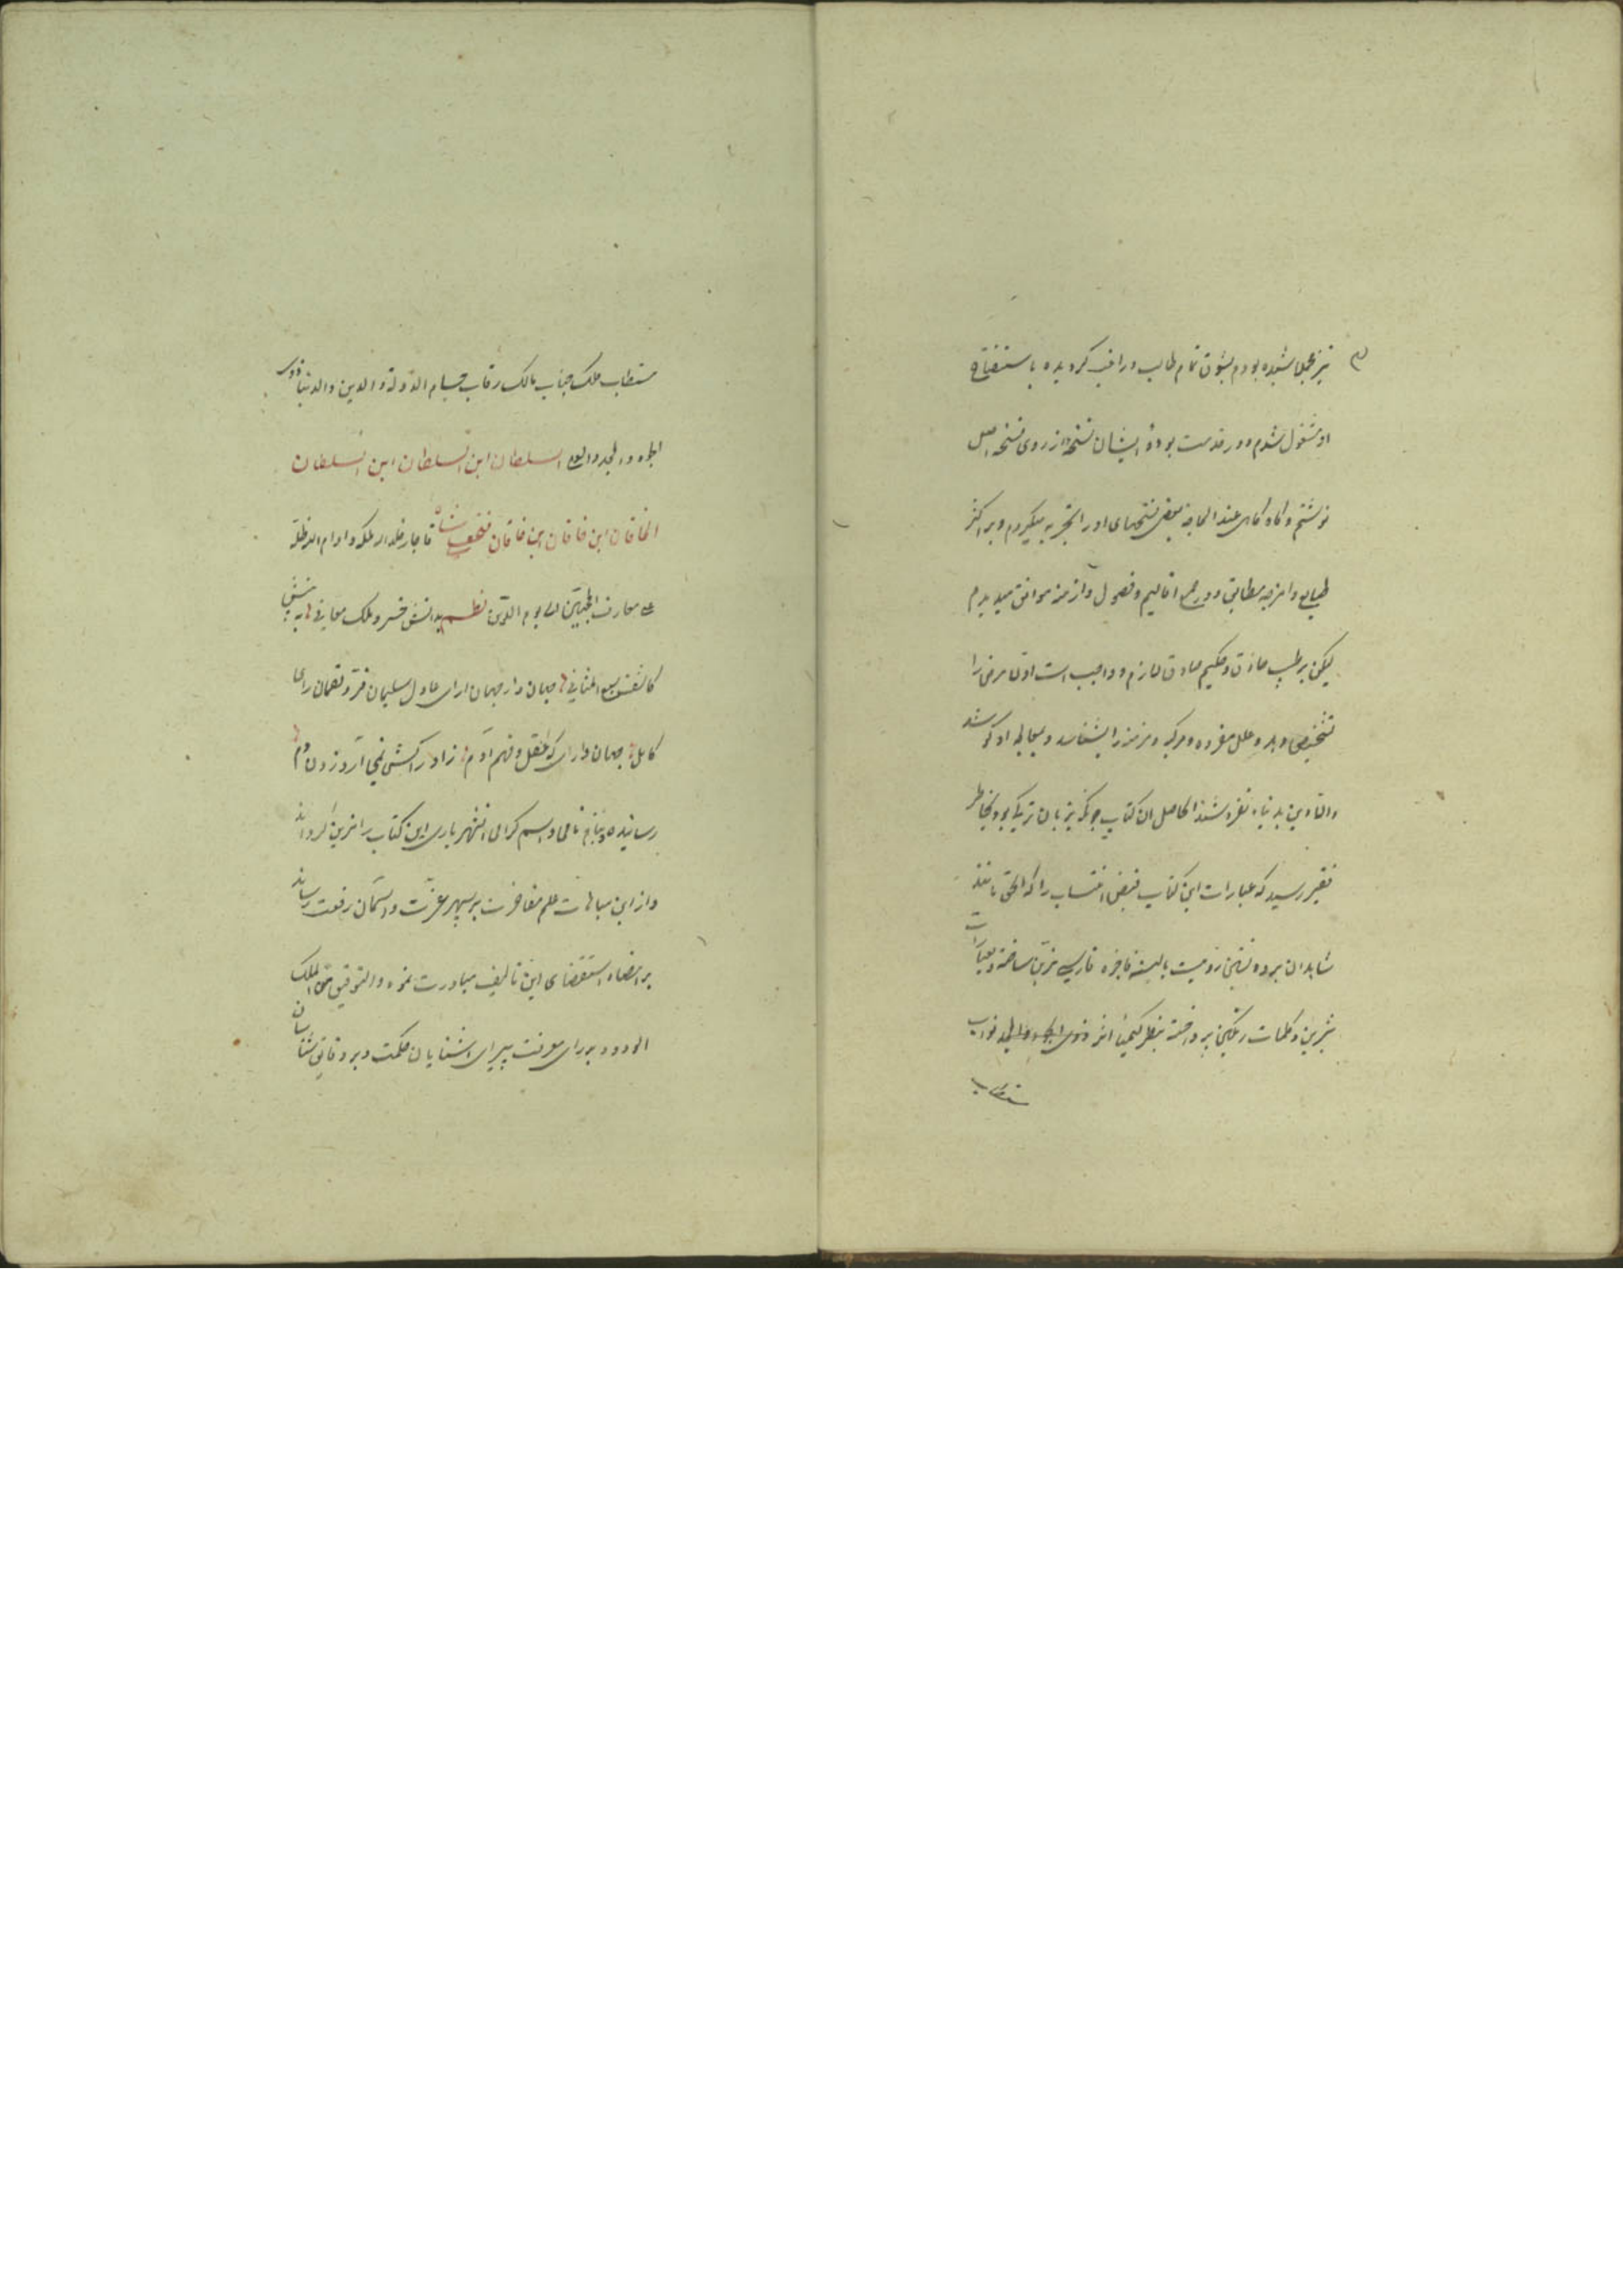 نیز مجملا شنیده بودم بشوق تمام طالب و راغب کردیده باستنتاخ
او مشغول شدم و در خدمت بوده ایشان نسخه از روی نسخه اصل
نوشتم و کاه کاهی عند الحاجة بعضی نسخهای او را تجربه میکردم و بر اکثر
طبایع و امزجه مطابق و در جمیع اقالیم و فصول و ازمنه موافق میدیدم
لیکن بر طبیب حاذق و حکیم صادق لازم و واجب است اولا مرض را
تشخیص دهد و علل مفرده و مرکبه و مزمنه را بشناسد و بمعالجه او کوشد
والا دین بدنیا نفروشد الحاصل ان کتاب چونکه بزبان ترکی بود بخاطر
فقیر رسید که عبارات این کتاب فیض انتساب را که الحق مانند
شاهدان پرده نشین رومیست بالبسه فاخره فارسی مزین ساخته و بعبارات
شیرین و کلمات رنکین پرداخته بنظر کیمیا اثر نواب
مستطاب
مستطاب ملک جناب مالک رقاب حسام الدولة والدین والدنیا ذوی
الجاه والمجد والعلی السلطان ابن السلطان ابن السلطان
الخاقان ابن خاقان ابن خاقان فتحعلی شاه قاجار خلد الله ملکه و ادام الله ظله
علی مفارق الی یوم الدین نظم بدانش خسرو ملک معانی به بینش
کاشف سبع المثانی جهاندار جهان ارای عادل سلیمان فر و لقمان رای
کامل جهان دارای که عقل و فهم آدم ز ادراکش نمی آرد زدن دم
رسانیده و بنام نامی و اسم کرامی انشهریاری این کتاب را مزین کرداند
و از این مباهات علم مفاخرت بر سپهر عزت و آسمان رفعت رساند
بر امضاء استقضای این تالیف مبادرت نموده والتوفیق من الملک
الودود بر رای معرفت پیرای اشنایان حکمت و بر دقایق شناسان